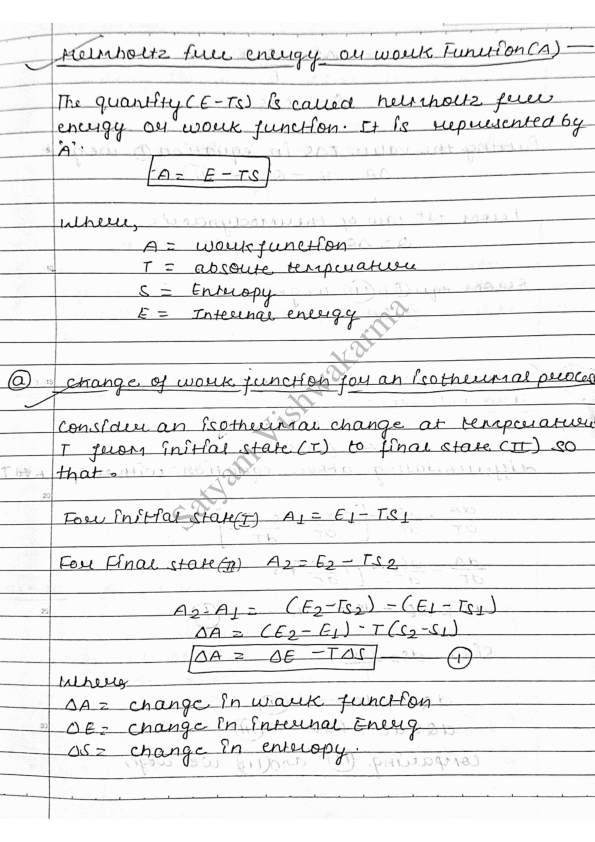 Helmholtz free energy or work Function(A) —
The quantity (E-TS) is called helmholtz free
energy or work function. It is represented by
'A'.
A = E - TS
Where,
A = work function
T = absolute temperature
S = Entropy
E = Internal energy
(a) change of work function for an isothermal process
Consider an isothermal change at temperature
T from initial state (I) to final state (II) so
that.
For initial state(I) A1 = E1 - TS1
For Final state(II) A2 = E2 - TS2
A2 - A1 = (E2-TS2) - (E1-TS1)
ΔA = (E2-E1) - T(S2-S1)
ΔA = ΔE - TΔS — (1)
Where,
ΔA = change in work function
ΔE = change in internal Energ
ΔS = change in entropy.
Satyam Vishwakarma